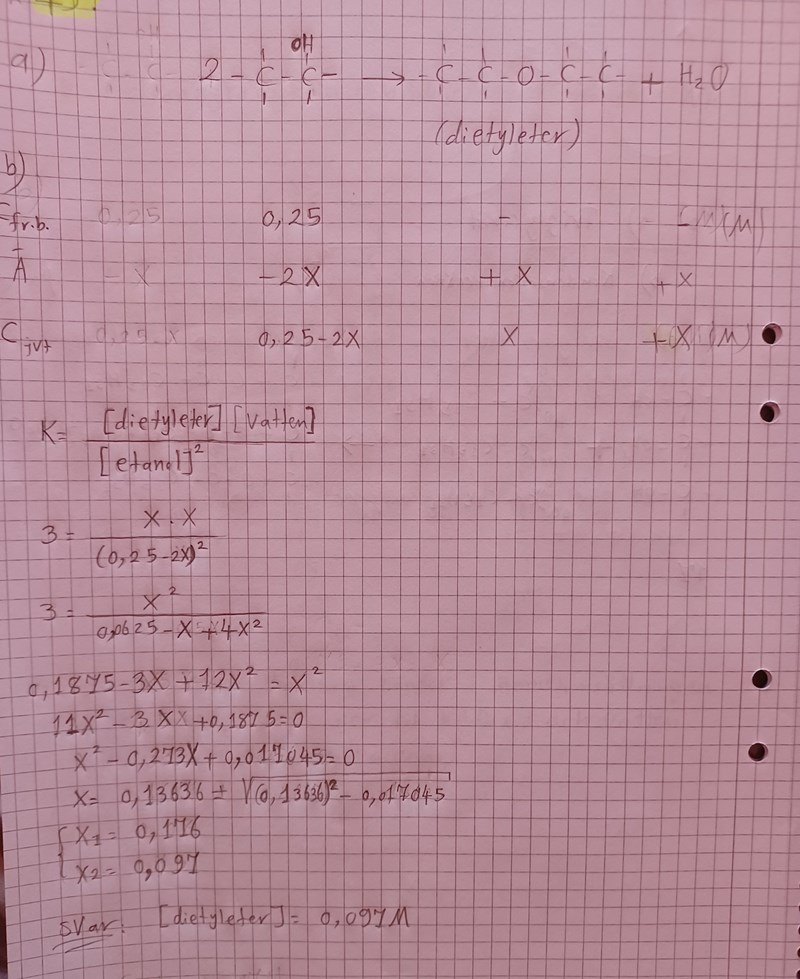 a) 2 -C-C- → -C-C-O-C-C- + H₂O
OH
(dietyleter)
b)
fr.b. 0,25 0,25 - - M (M)
Ā - X -2X + X + X
C jvt 0,25-X 0,25-2X X + X (M)
K= [dietyleter] [Vatten]
[etanol]²
3 = X . X
(0,25-2X)²
3 = X²
0,0625-X+4X²
0,1875-3X+12X² = X²
11X² - 3X +0,1875=0
X² - 0,273X + 0,017045=0
X= 0,13636 ± √(0,13636)² - 0,017045
{ X₁ = 0,176
X₂ = 0,097
Svar: [dietyleter] = 0,097M